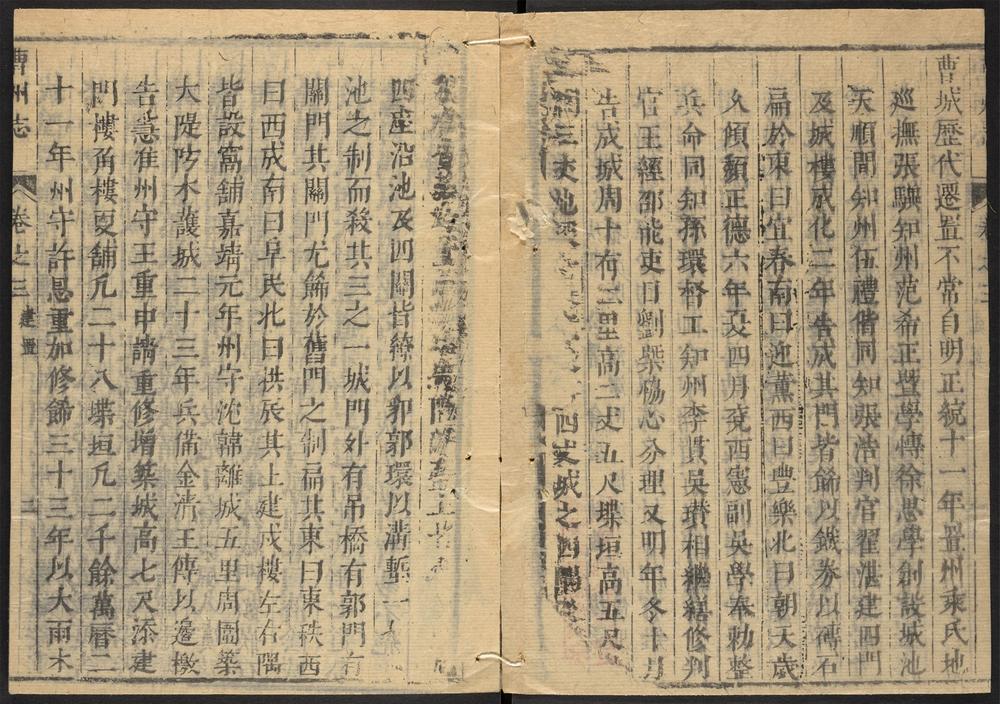 曹城歷代遷置不常自明正統十一年置州乘氏地
巡撫張驥知州范希正豎學傳徐思學創設城池
天順間知州伍禮偕同知張浩判官翟湛建四門
及城樓成化二年告成其門皆飾以鐵券以磚石
扁於東曰宜春南曰迎薰西曰豐樂北曰朝天歲
久傾頽正德六年夏四月兗西憲副吳學奉勅整
兵命同知孫環督工知州李貫吳瓚相繼繕修判
官王經邵能吏目劉榮協心分理又明年冬十月
告成城周十有二里高二丈五尺堞垣高五尺
闊三丈池 四丈城之四隅
四座沿池及四關皆繚以郛郭環以溝塹一
池之制而殺其三之一城門外有吊橋有郭門有
關門其關門尤飾於舊門之制扁其東曰東秩西
曰西成南曰阜民北曰拱辰其上建戍樓左右隅
皆設窩舖嘉靖元年州守沈韓離城五里周圍築
大隄防水護城二十三年兵備金清王傳以邊檄
告急准州守王重申請重修增築城高七尺添建
門樓角樓更舖凡二十八堞垣凡二千餘萬曆二
十一年州守許恩重加修飾三十三年以大雨水
曹州志
卷之三
建置
二